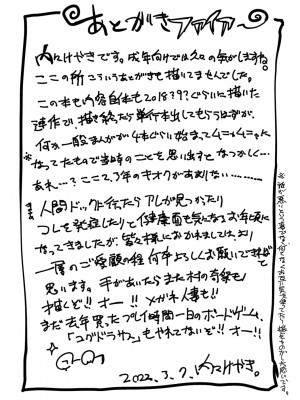 あとがきファイアー
内々けやきです。成年向けでは久々の気がしますね。
ここの所こういうあとがきも描いてませんでした。
この本も内容自体も2018?9?ぐらいに描いた
連作で、描き終ったら単行本出してもらうはずが、
何か一般まんがが4本ぐらい始まってムニャムニャに
なってたもので当時のことを思い出すとなつかしく…
あれ…?ここ2、3年のキオクがあまりない………
まぁ人間ドックに行ったらアレが見つかり
コレを発症したりと健康面も気になるお年頃に
なってきましたが、皆々様におかれましては、より
一層のご愛顧の程何卒よろしくお願いできればと
思います。手があいたらまた村の奇祭も
描くぞ!!オー!!メガネ人妻も!!
まだ去年買ったプレイ時間一日のボードゲーム、
「ユグドラサス」もやれてないぞ!!オー!
2022.3.7. 内々けやき。